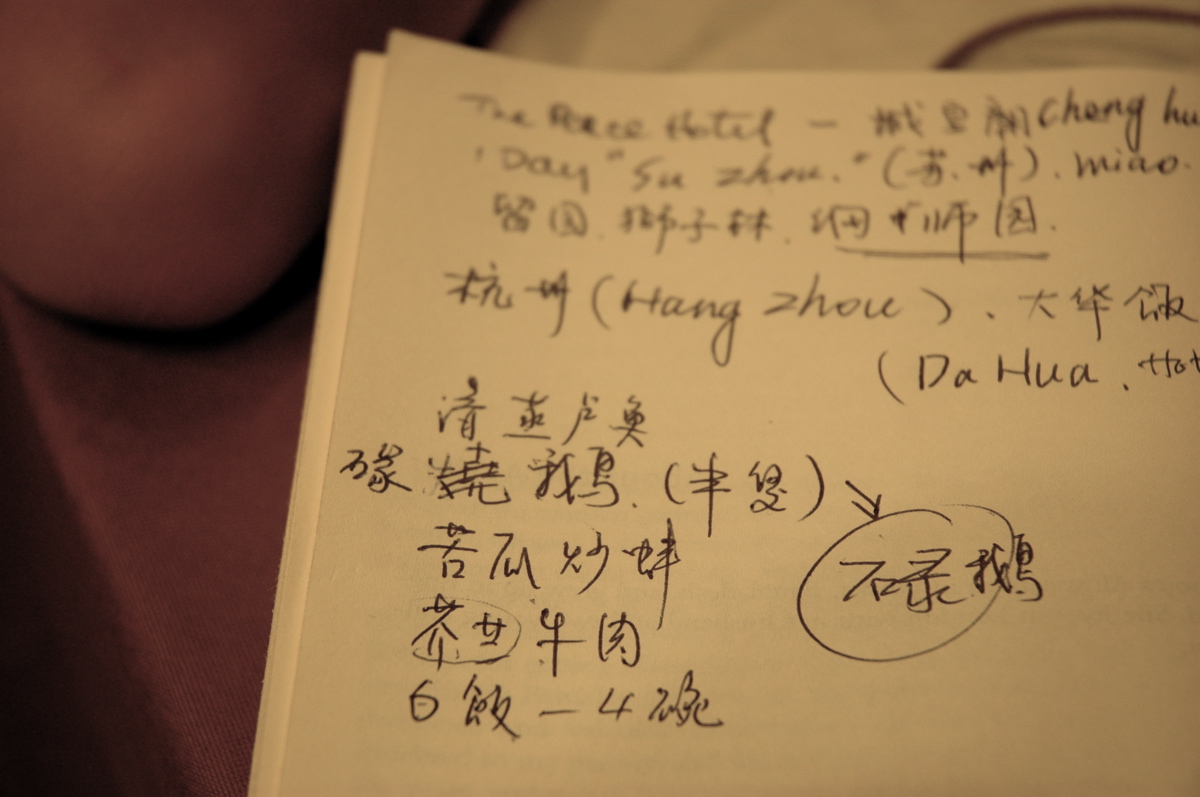 The Peace Hotel — 城皇廟 Cheng hu
1 Day "Su zhou." (苏州). miao.
留园. 狮子林. 网师园.
杭州 (Hang zhou). 大华飯
(Da Hua. Hot
清蒸卢
燒鵝. (半煲)
碌鵝
苦瓜炒蚌
芥 牛肉
白飯 — 4碗